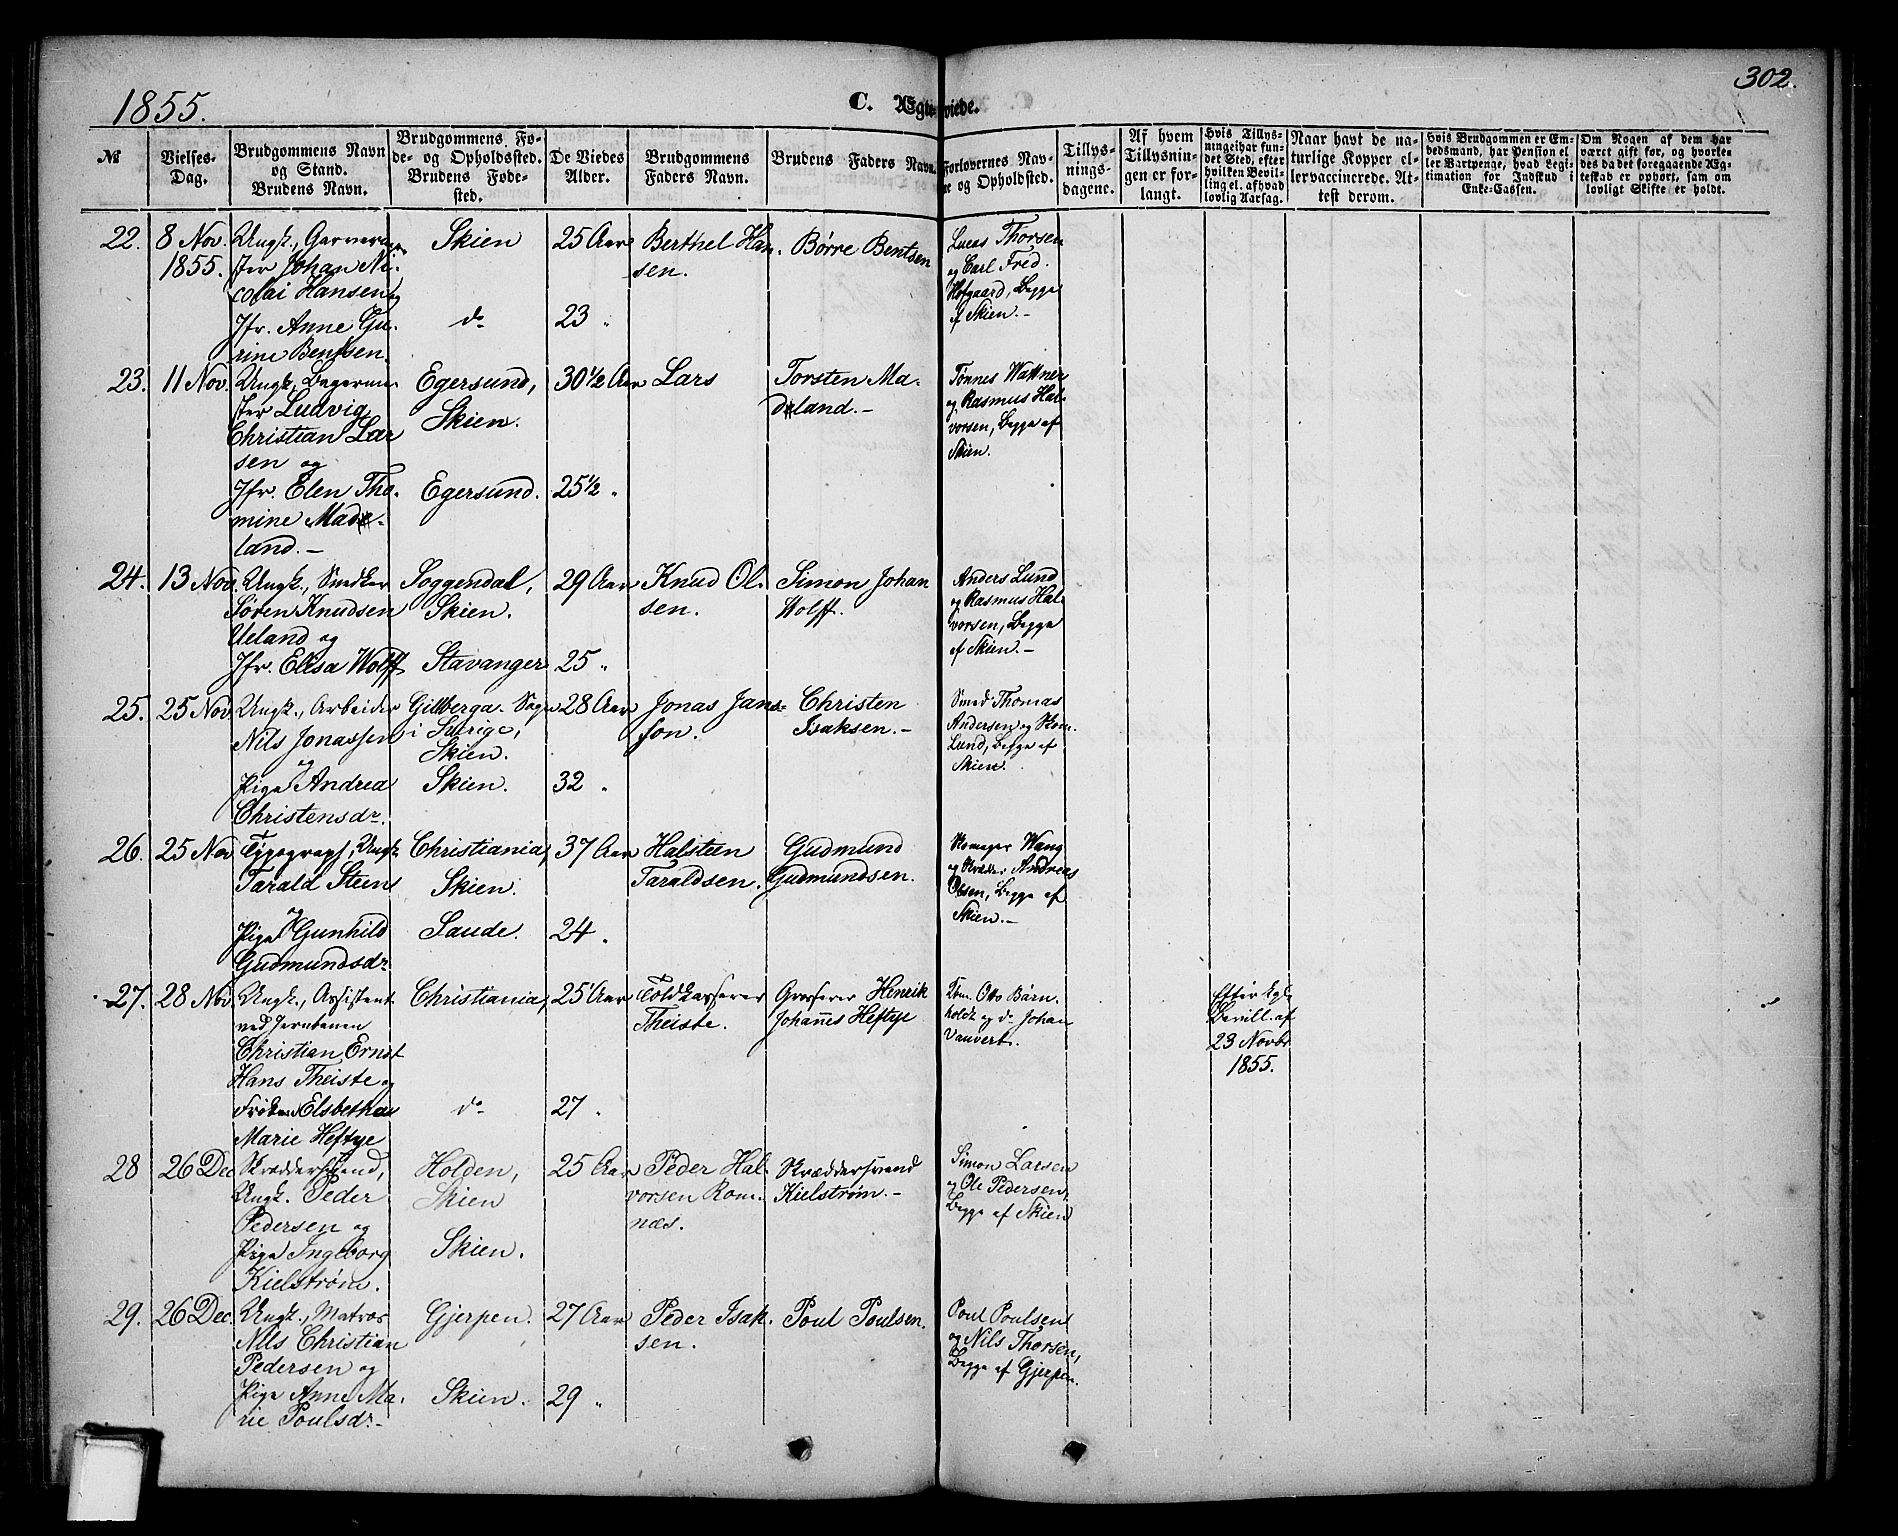 1855.
C. Ægteviede.
302.
№
Vielses-
Dag.
Brudgommens Navn
og Stand.
Brudens Navn.
Brudgommens Fø-
de- og Opholdssted.
Brudens Føde-
sted.
De Viedes
Alder.
Brudgommens
Faders Navn.
Brudens Faders Navn.
Forlovernes Nav-
ne og Opholdssted.
Tillys-
nings-
dagene.
Af hvem
Tillysnin-
gen er for-
langt.
Hvis Tillys-
ning ei har fun-
det Sted, efter
hvilken Bevil-
ling el. af hvad
lovlig Aarsag.
Naar havt de na-
turlige Kopper el-
ler vaccinerede. At-
test derom.
Hvis Brudgommen er Em-
bedsmand, har Pension el-
ler Vartpenge, hvad Legi-
timation for Indskud i
Enke-Cassen.
Om Nogen af dem har
været gift før, og hvorle-
des da det foregaaende Æg-
teskab er ophørt, sam om
lovligt Skifte er holdt.
22.
8 Nov.
1855.
Ungk., Garverme-
ster Johan Ni-
colai Hansen og
Jfr. Anne Gu-
rine Bentsen.
Skien
do
25 Aar
23 "
Berthel Han-
sen.
Børre Bentsen
Lucas Thorsen
og Carl Fred.
Hofgaard, Begge
af Skien.-
23.
11 Nov.
Ungk., Bagerme-
ster Ludvig
Christian Lar
sen og
Jfr. Elen Tho-
mine Made-
land.-
Egersund,
Skien.
Egersund.
30 1/2 Aar
25 1/2 "
Lars
Torsten Ma-
deland.-
Tønnes Wattner
og Rasmus Hal-
vorsen, Begge af
Skien.
24.
13 Nov.
Ungk., Snedker
Søren Knudsen
Ueland og
Jfr. Elisa Wolff
Soggendal,
Skien.
Stavanger
29 Aar
25 "
Knud Ol-
sen.
Simon Johan
Wolff.
Anders Lund
og Rasmus Hal-
vorsen, Begge
af Skien.-
25.
25 Nov.
Ungk., Arbeider
Nils Jonassen
og
Pige Andrea
Christensdr.
Gillberga Sogn
i Sverige,
Skien.
Skien.
28 Aar
32 "
Jonas Jans-
son.
Christen
Isaksen.-
Smed Thomas
Andersen og Skom.
Lund, Begge af
Skien.
26.
25 Nov
Typograph, Ungk.
Tarald Steens
og
Pige Gunhild
Gudmundsdr.
Christiania,
Skien.
Saude.
37 Aar
24 "
Halsteen
Taraldsen.
Gudmund
Gudmundsen.
Skomager Wang
og Skræder Andreas
Olsen, Begge af
Skien.-
27.
28 Nov.
Ungk., Assistent
ved Jernbanen
Christian Ernst
Hans Theiste og
Frøken Elsbetha
Marie Heftye
Christiania,
do
25 Aar
27 "
Toldkasserer
Theiste.
Grosserer Henrik
Johannes Heftye
Kbm. Otto Børn-
holdt og do Johan
Vauvert.
Efter kgl.
Bevill. af
23 Novbr.
1855.
28
26 Dec
Skræddersvend,
Ungk. Peder
Pedersen og
Pige Ingeborg
Kielstrøm.
Holden,
Skien
Skien.
25 Aar
Peder Hal-
vorsen Rom-
næs.
Skræddersvend
Kielstrøm.-
Simon Larsen
og Ole Pedersen,
Begge af Skien
29.
26 Dec.
Ungk., Matros
Nils Christian
Pedersen og
Pige Anne Ma-
rie Poulsdr.-
Gjerpen.
Skien.
27 Aar
29 "
Peder Isak-
sen.
Poul Poulsen.
Poul Poulsen
og Nils Thorsen,
Begge af Gjerpen.